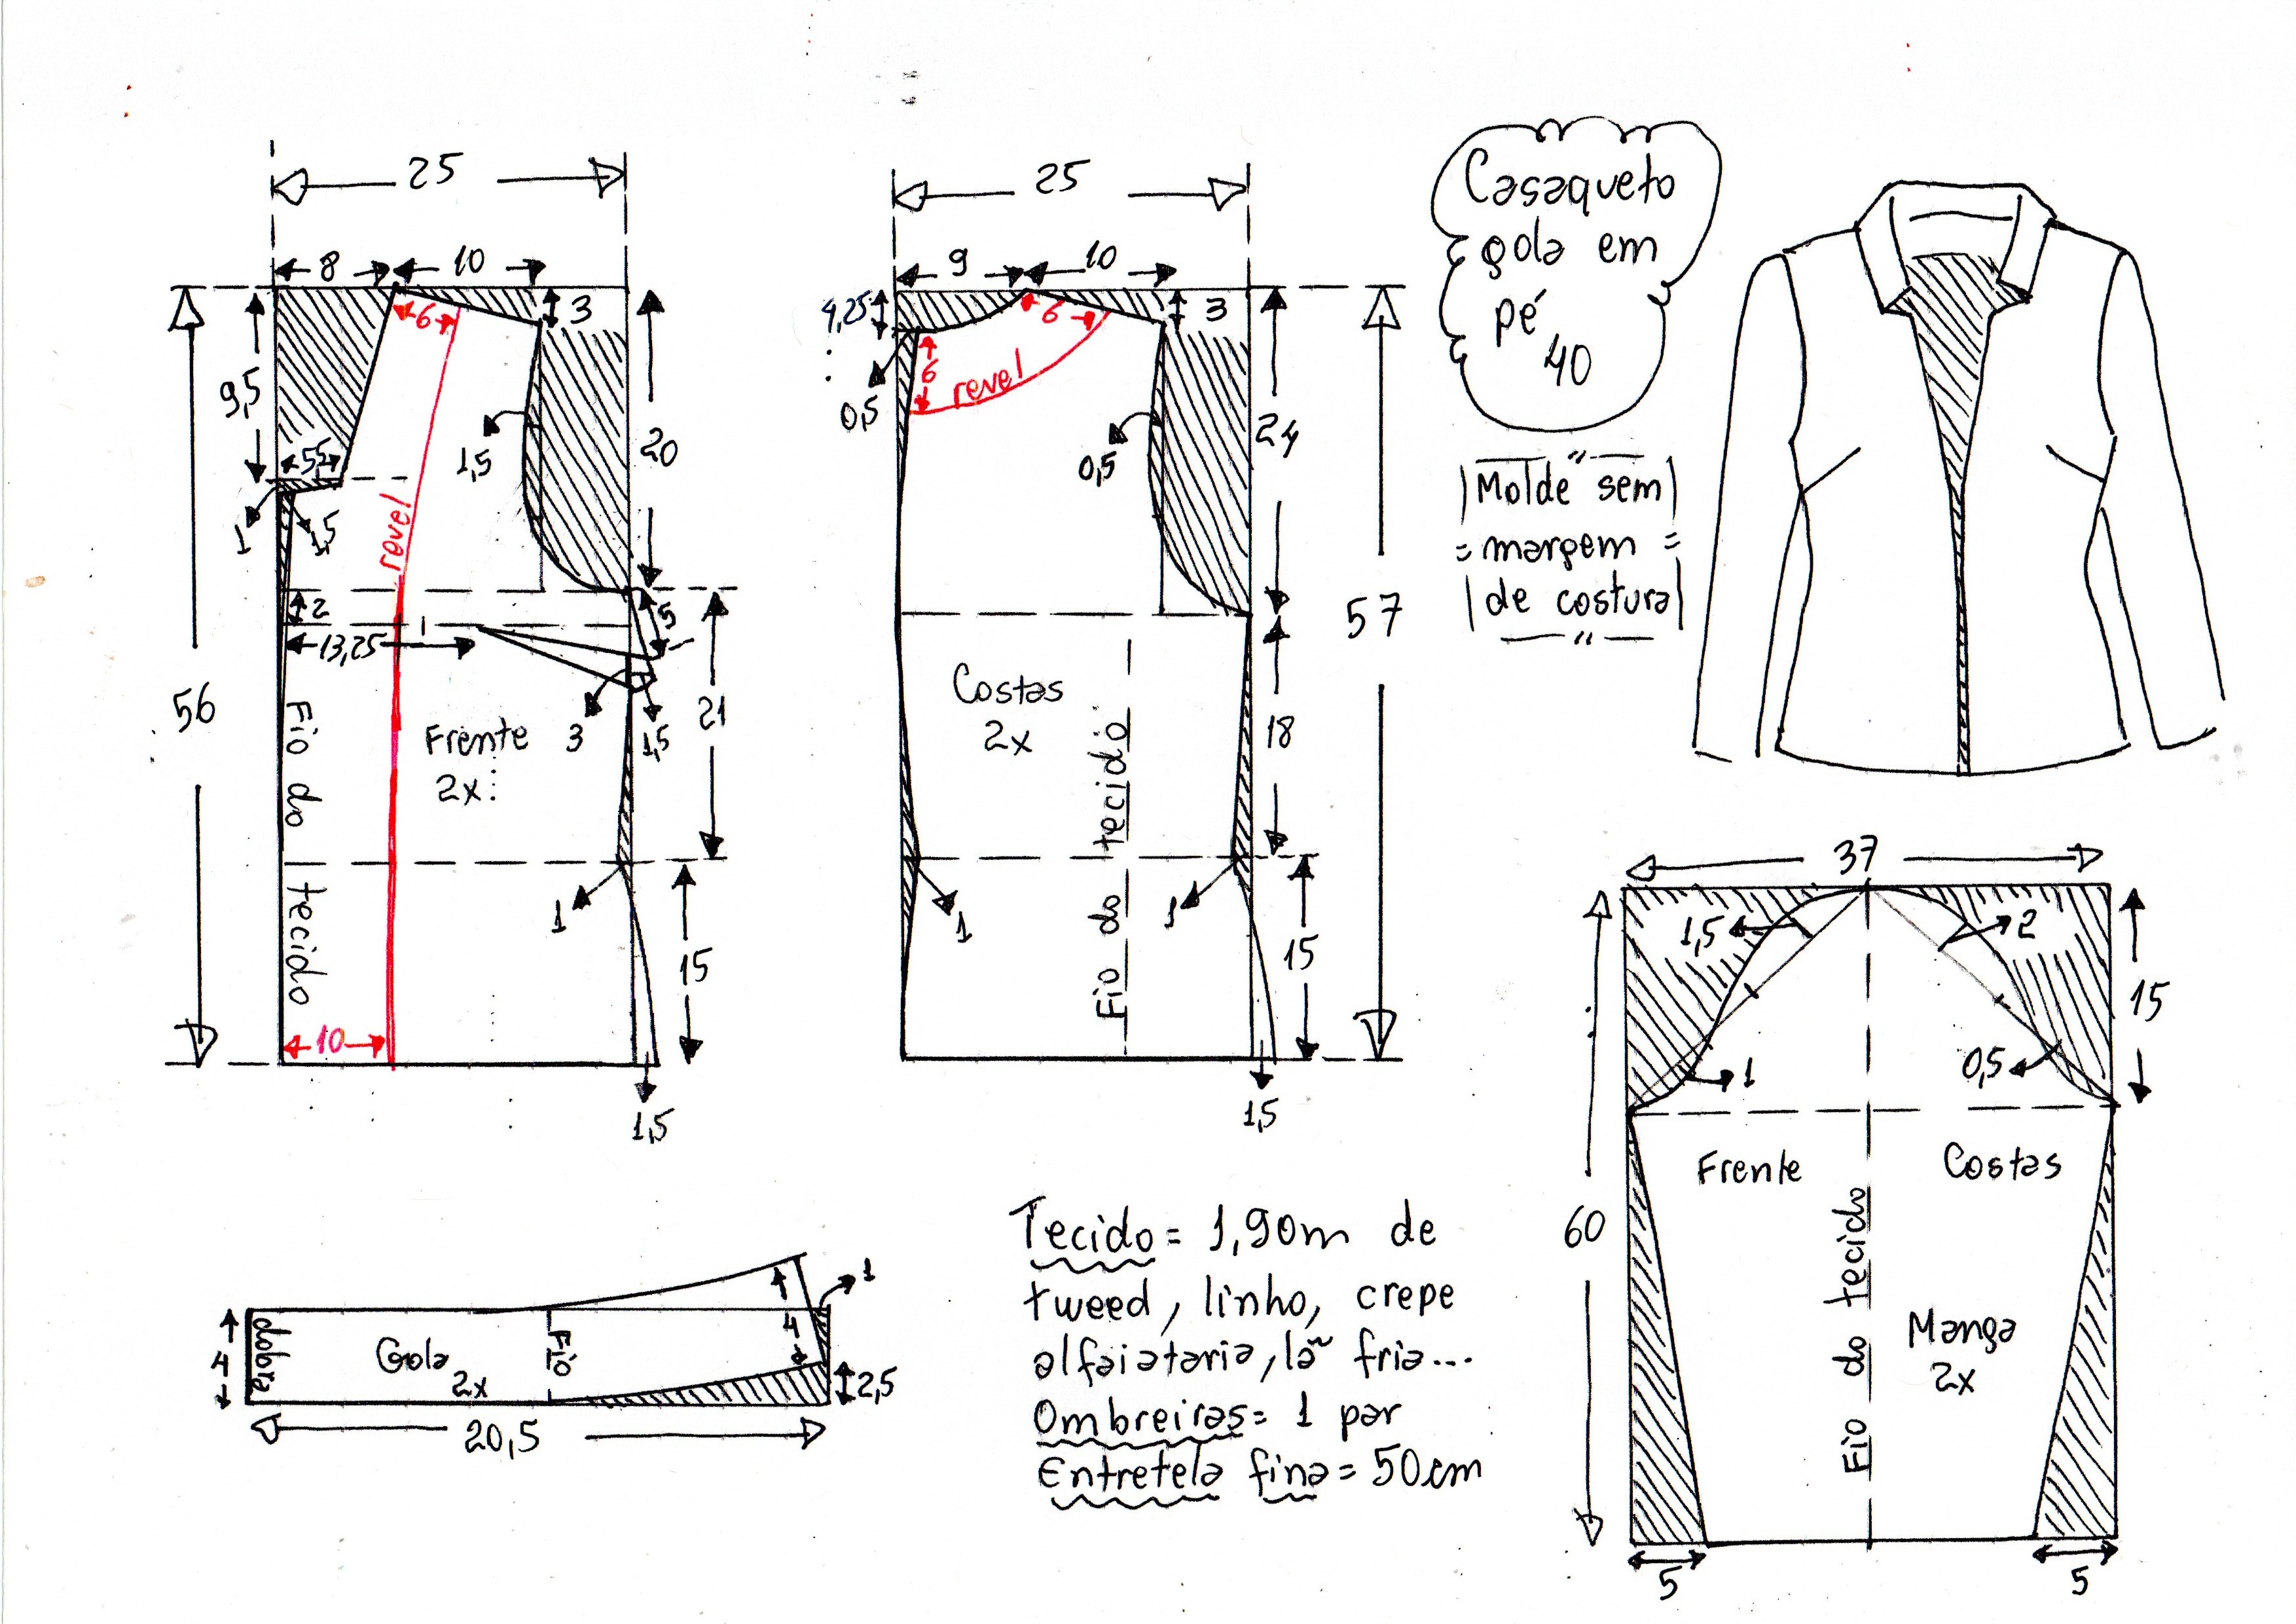 25
8
10
3
6
9,5
5,5
1
1,5
1,5
20
revel
2
13,25
5
3
1,5
21
56
Fio do tecido
Frente
2x
1
15
10
1,5
25
9
10
4,25
3
6
6
revel
0,5
0,5
24
57
Costas
2x
Fio do tecido
18
1
1
15
1,5
Casaqueto
gola em
pé
40
Molde sem
margem
de costura
37
1,5
2
15
1
0,5
Frente
Costas
60
Fio do tecido
Manga
2x
5
5
dobra
4
Gola
2x
Fio
4
1
2,5
20,5
Tecido = 1,90m de
tweed, linho, crepe
alfaiataria, lã fria...
Ombreiras = 1 par
Entretela fina = 50cm